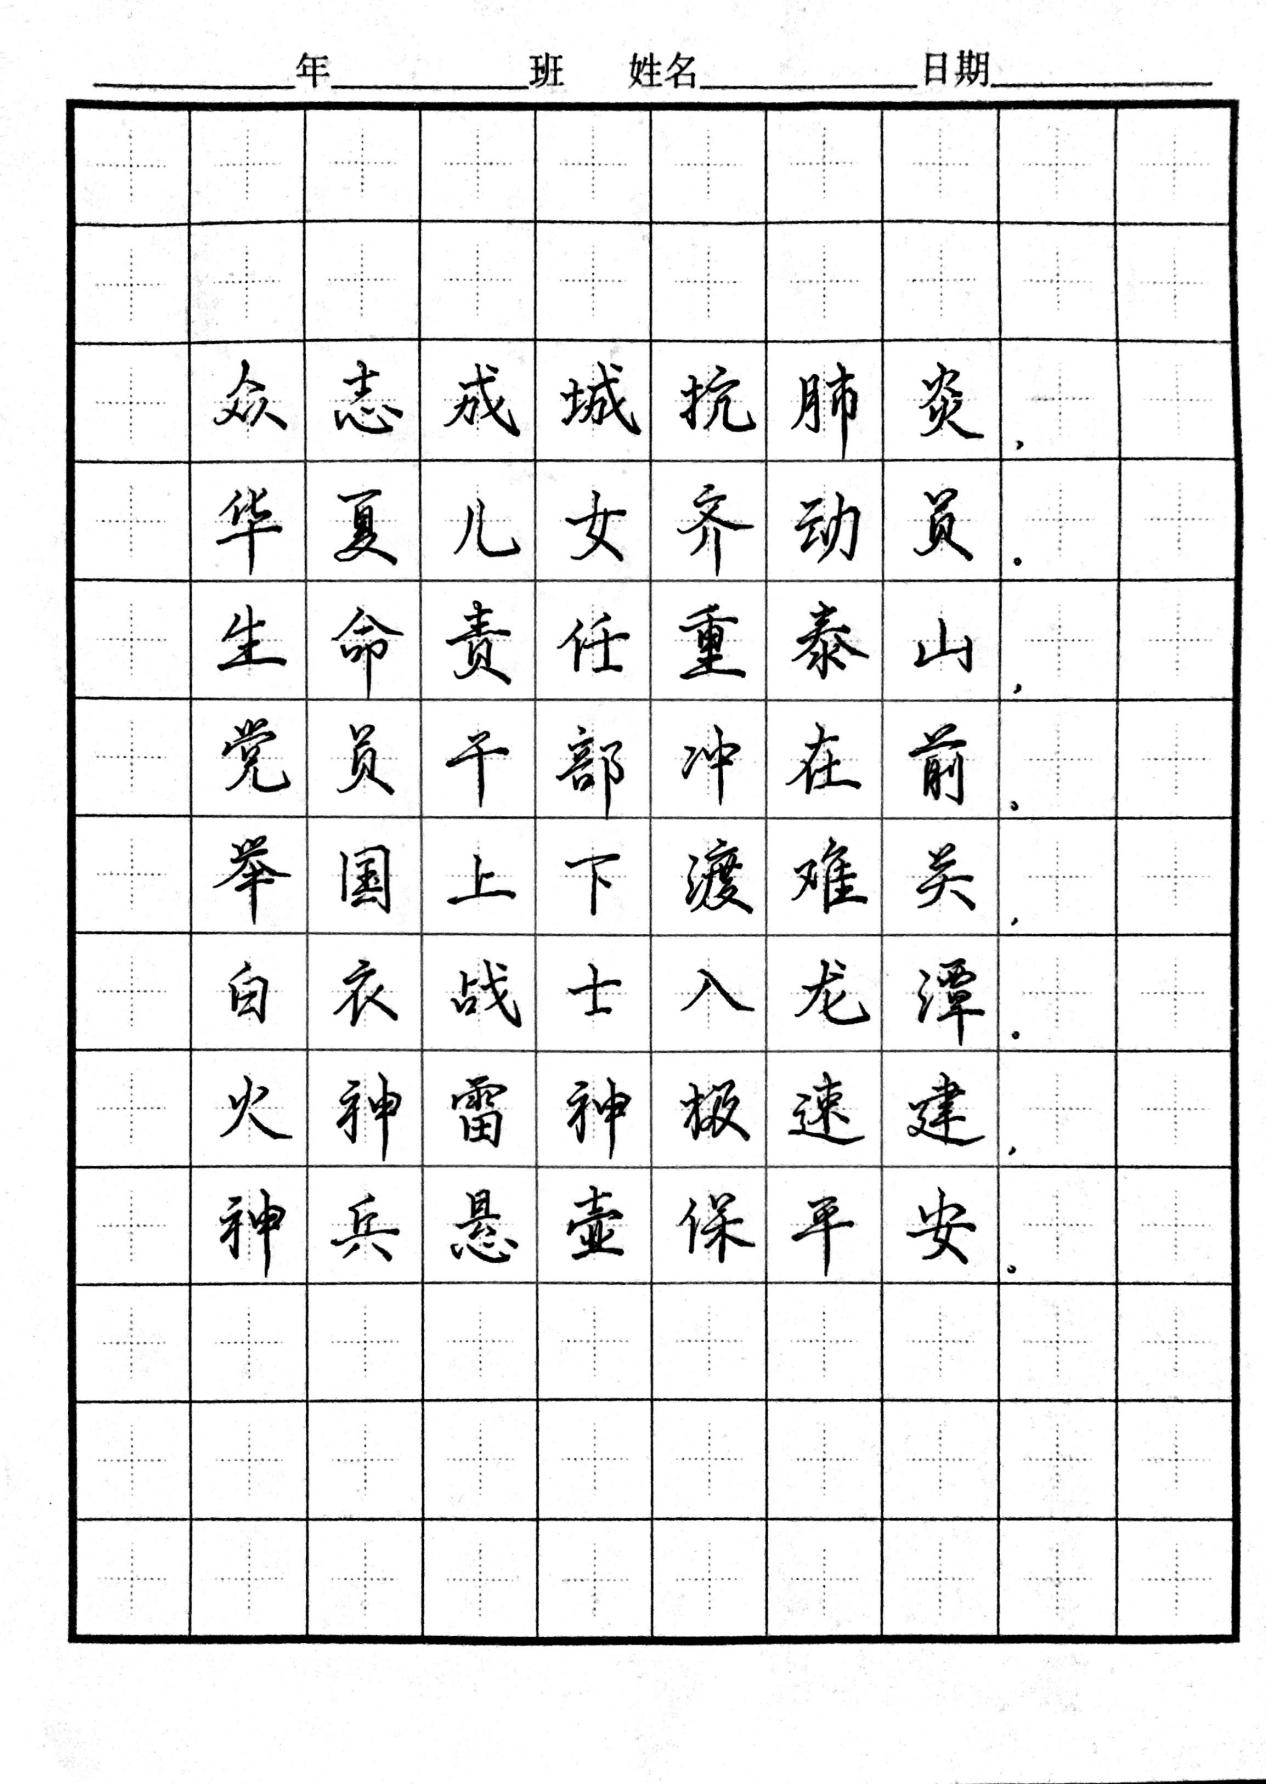 年 班 姓名 日期
众志成城抗肺炎,
华夏儿女齐动员。
生命责任重泰山,
党员干部冲在前。
举国上下渡难关,
白衣战士入龙潭。
火神雷神极速建,
神兵悬壶保平安。